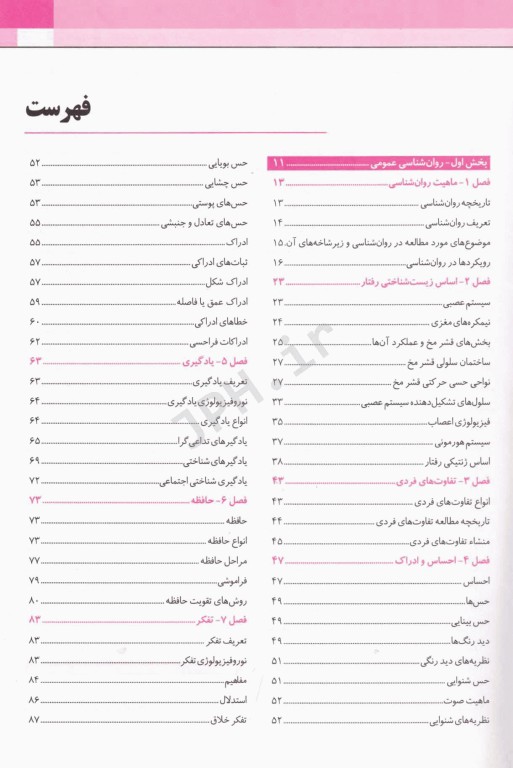 فهرست
بخش اول- روان‌شناسی عمومی ۱۱
فصل ۱- ماهیت روان‌شناسی ۱۳
تاریخچه روان‌شناسی ۱۳
تعریف روان‌شناسی ۱۴
موضوع‌های مورد مطالعه در روان‌شناسی و زیرشاخه‌های آن ۱۵
رویکردها در روان‌شناسی ۱۶
فصل ۲- اساس زیست‌شناختی رفتار ۲۳
سیستم عصبی ۲۳
نیمکره‌های مغزی ۲۴
بخش‌های قشر مخ و عملکرد آن‌ها ۲۵
ساختمان سلولی قشر مخ ۲۷
نواحی حسی حرکتی قشر مخ ۲۷
سلول‌های تشکیل‌دهنده سیستم عصبی ۳۳
فیزیولوژی اعصاب ۳۵
سیستم هورمونی ۳۷
اساس ژنتیکی رفتار ۳۸
فصل ۳- تفاوت‌های فردی ۴۳
انواع تفاوت‌های فردی ۴۳
تاریخچه مطالعه تفاوت‌های فردی ۴۴
منشاء تفاوت‌های فردی ۴۵
فصل ۴- احساس و ادراک ۴۷
احساس ۴۷
حس‌ها ۴۹
حس بینایی ۴۹
دید رنگ‌ها ۴۹
نظریه‌های دید رنگی ۵۱
حس شنوایی ۵۱
ماهیت صوت ۵۲
نظریه‌های شنوایی ۵۲
حس بویایی ۵۲
حس چشایی ۵۳
حس‌های پوستی ۵۳
حس‌های تعادل و جنبشی ۵۵
ادراک ۵۵
ثبات‌های ادراکی ۵۷
ادراک شکل ۵۷
ادراک عمق یا فاصله ۵۹
خطاهای ادراکی ۶۰
ادراکات فراحسی ۶۲
فصل ۵- یادگیری ۶۳
تعریف یادگیری ۶۳
نوروفیزیولوژی یادگیری ۶۴
انواع یادگیری ۶۴
یادگیرهای تداعی‌گرا ۶۵
یادگیرهای شناختی ۶۹
یادگیری شناختی اجتماعی ۷۲
فصل ۶- حافظه ۷۳
حافظه ۷۳
انواع حافظه ۷۳
مراحل حافظه ۷۷
فراموشی ۷۹
روش‌های تقویت حافظه ۸۰
فصل ۷- تفکر ۸۳
تعریف تفکر ۸۳
نوروفیزیولوژی تفکر ۸۳
مفاهیم ۸۴
استدلال ۸۶
تفکر خلاق ۸۷
JPH.ir